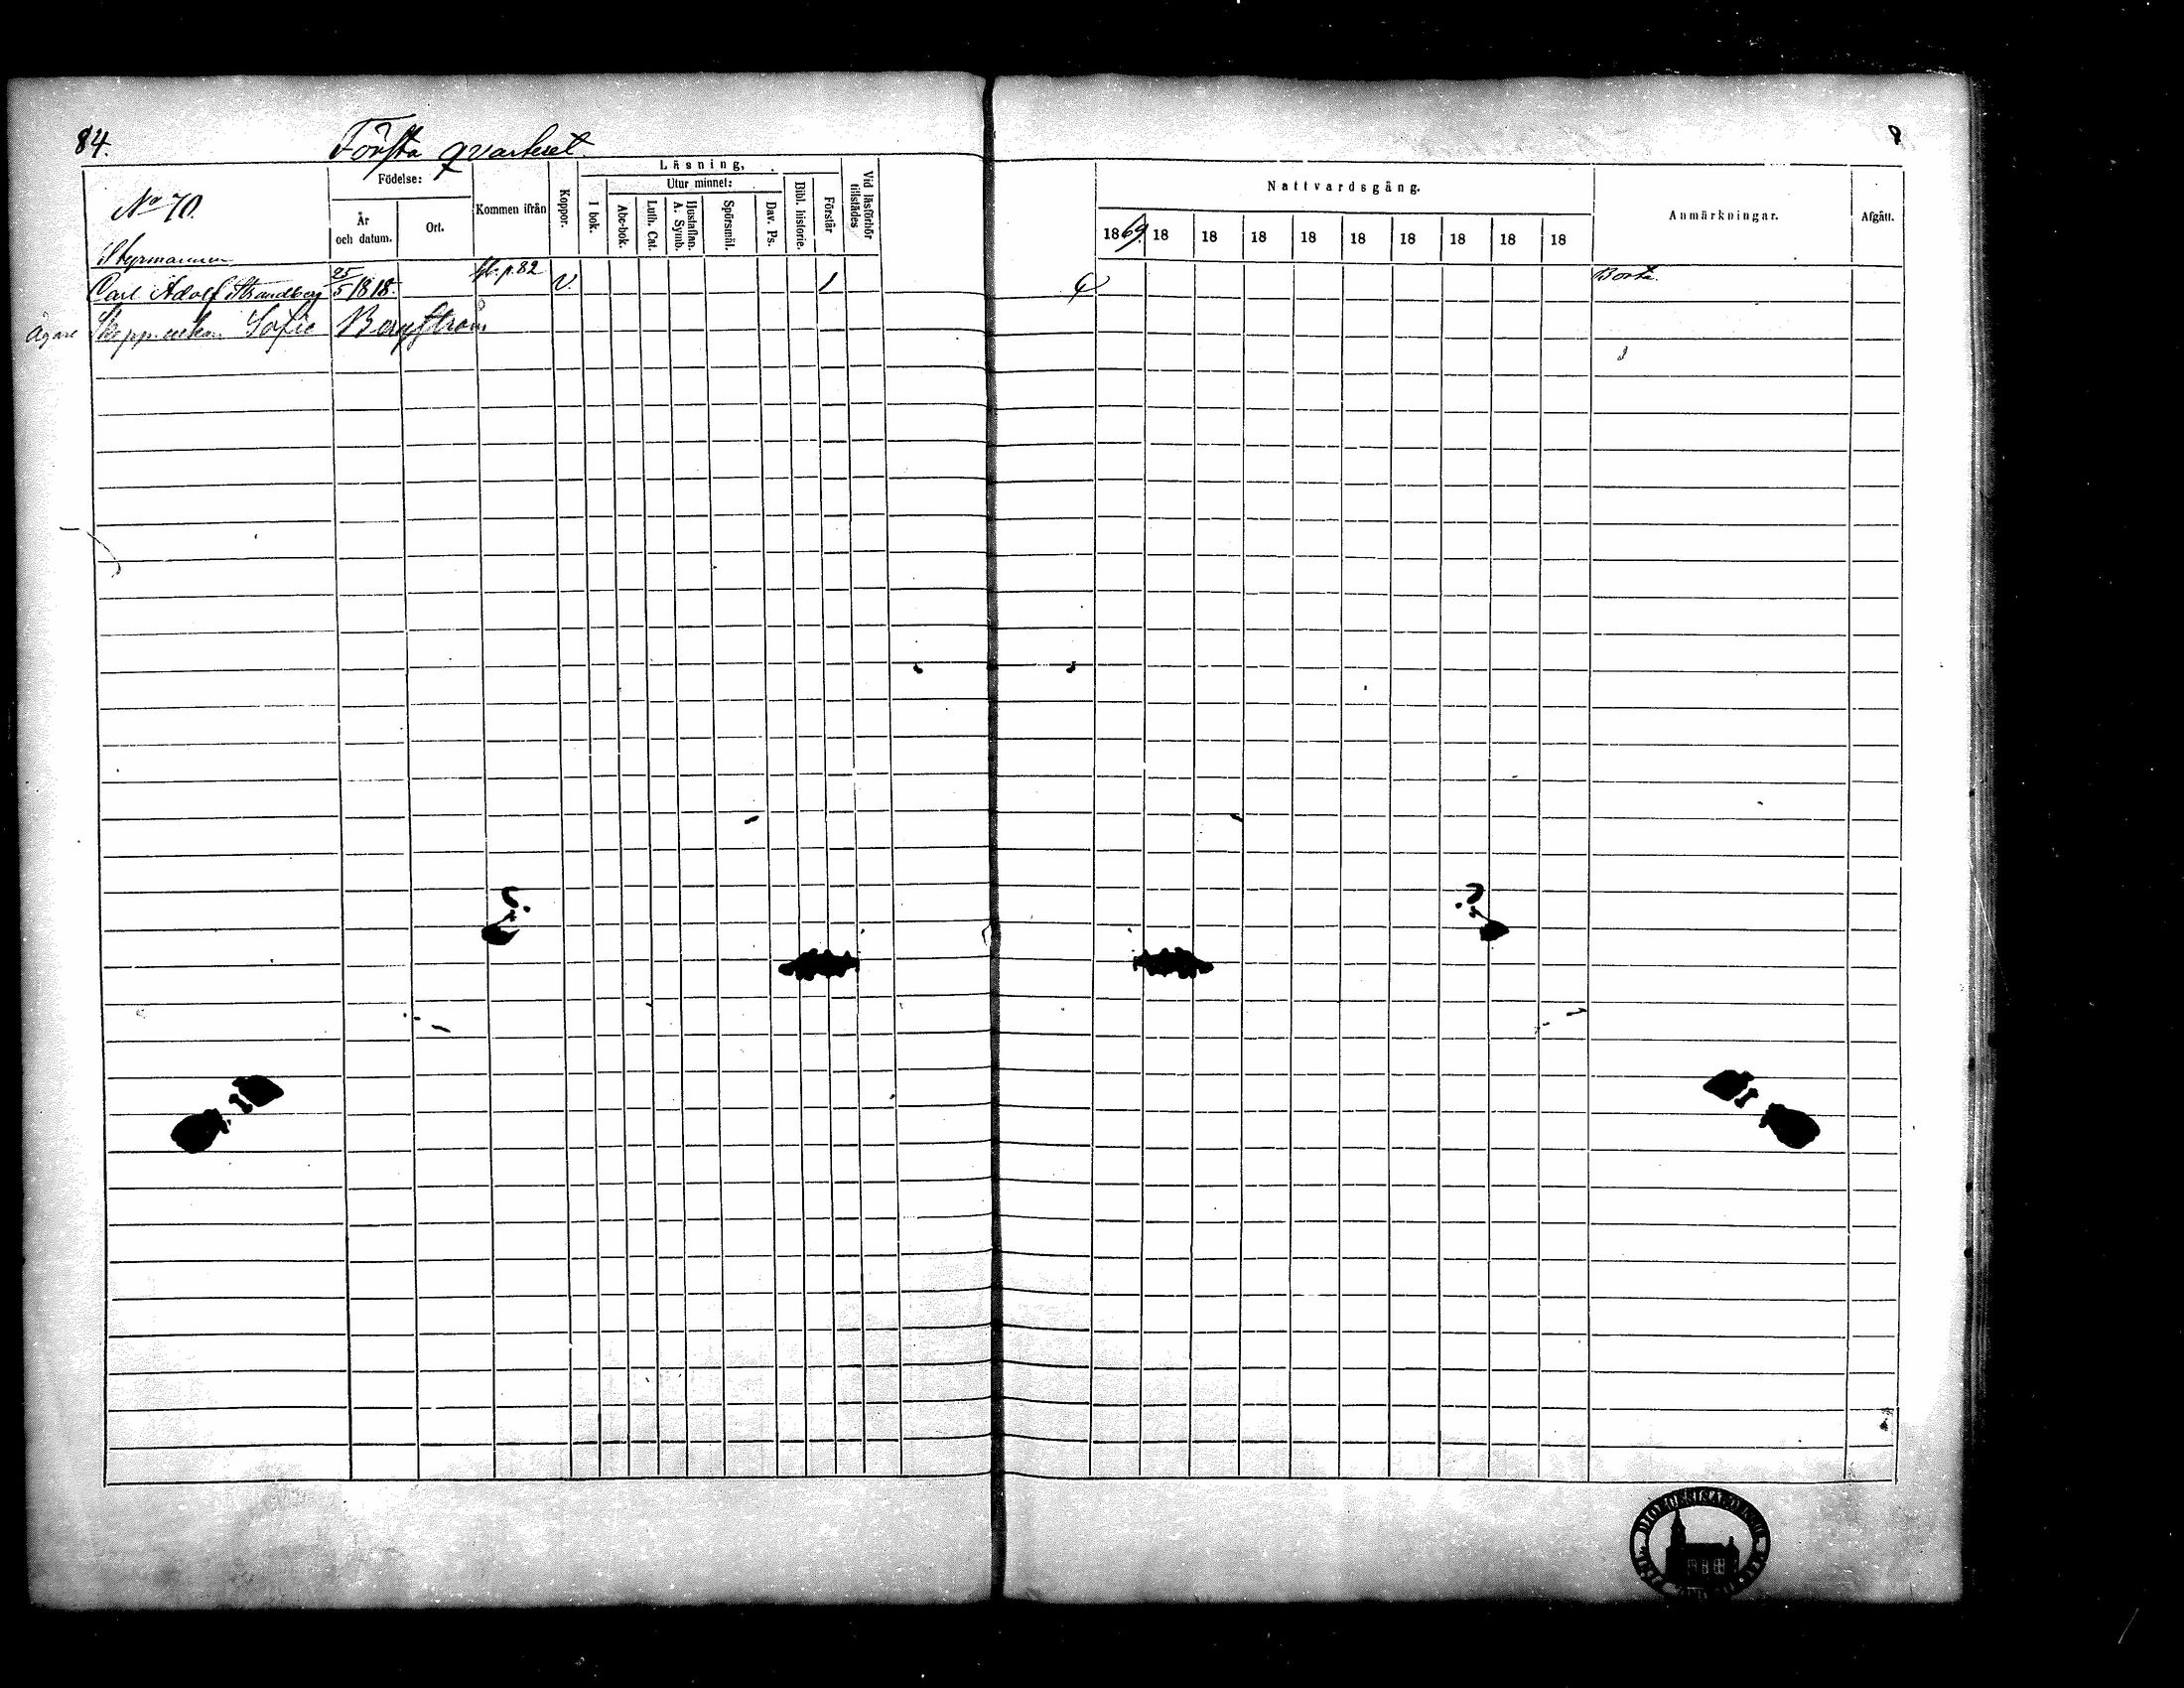 84.
Första quarteret
No 70.
Födelse:
År och datum.
Ort.
Kommen ifrån
Koppor.
Läsning.
I bok.
Utur minnet:
Abc-bok.
Luth. Cat.
Hustaflan.
A. Symb.
Spörsmål.
Dav. Ps.
Bibl. historie.
Förstår
Vid läsförhör tillstädes
Nattvardsgång.
1869. 18 18 18 18 18 18 18 18 18
Anmärkningar.
Afgått.
Styrmannen
Carl Adolf Strandberg 25/5 1818. p. 82 v. 1 Borta.
Ägare Sofie Bergström